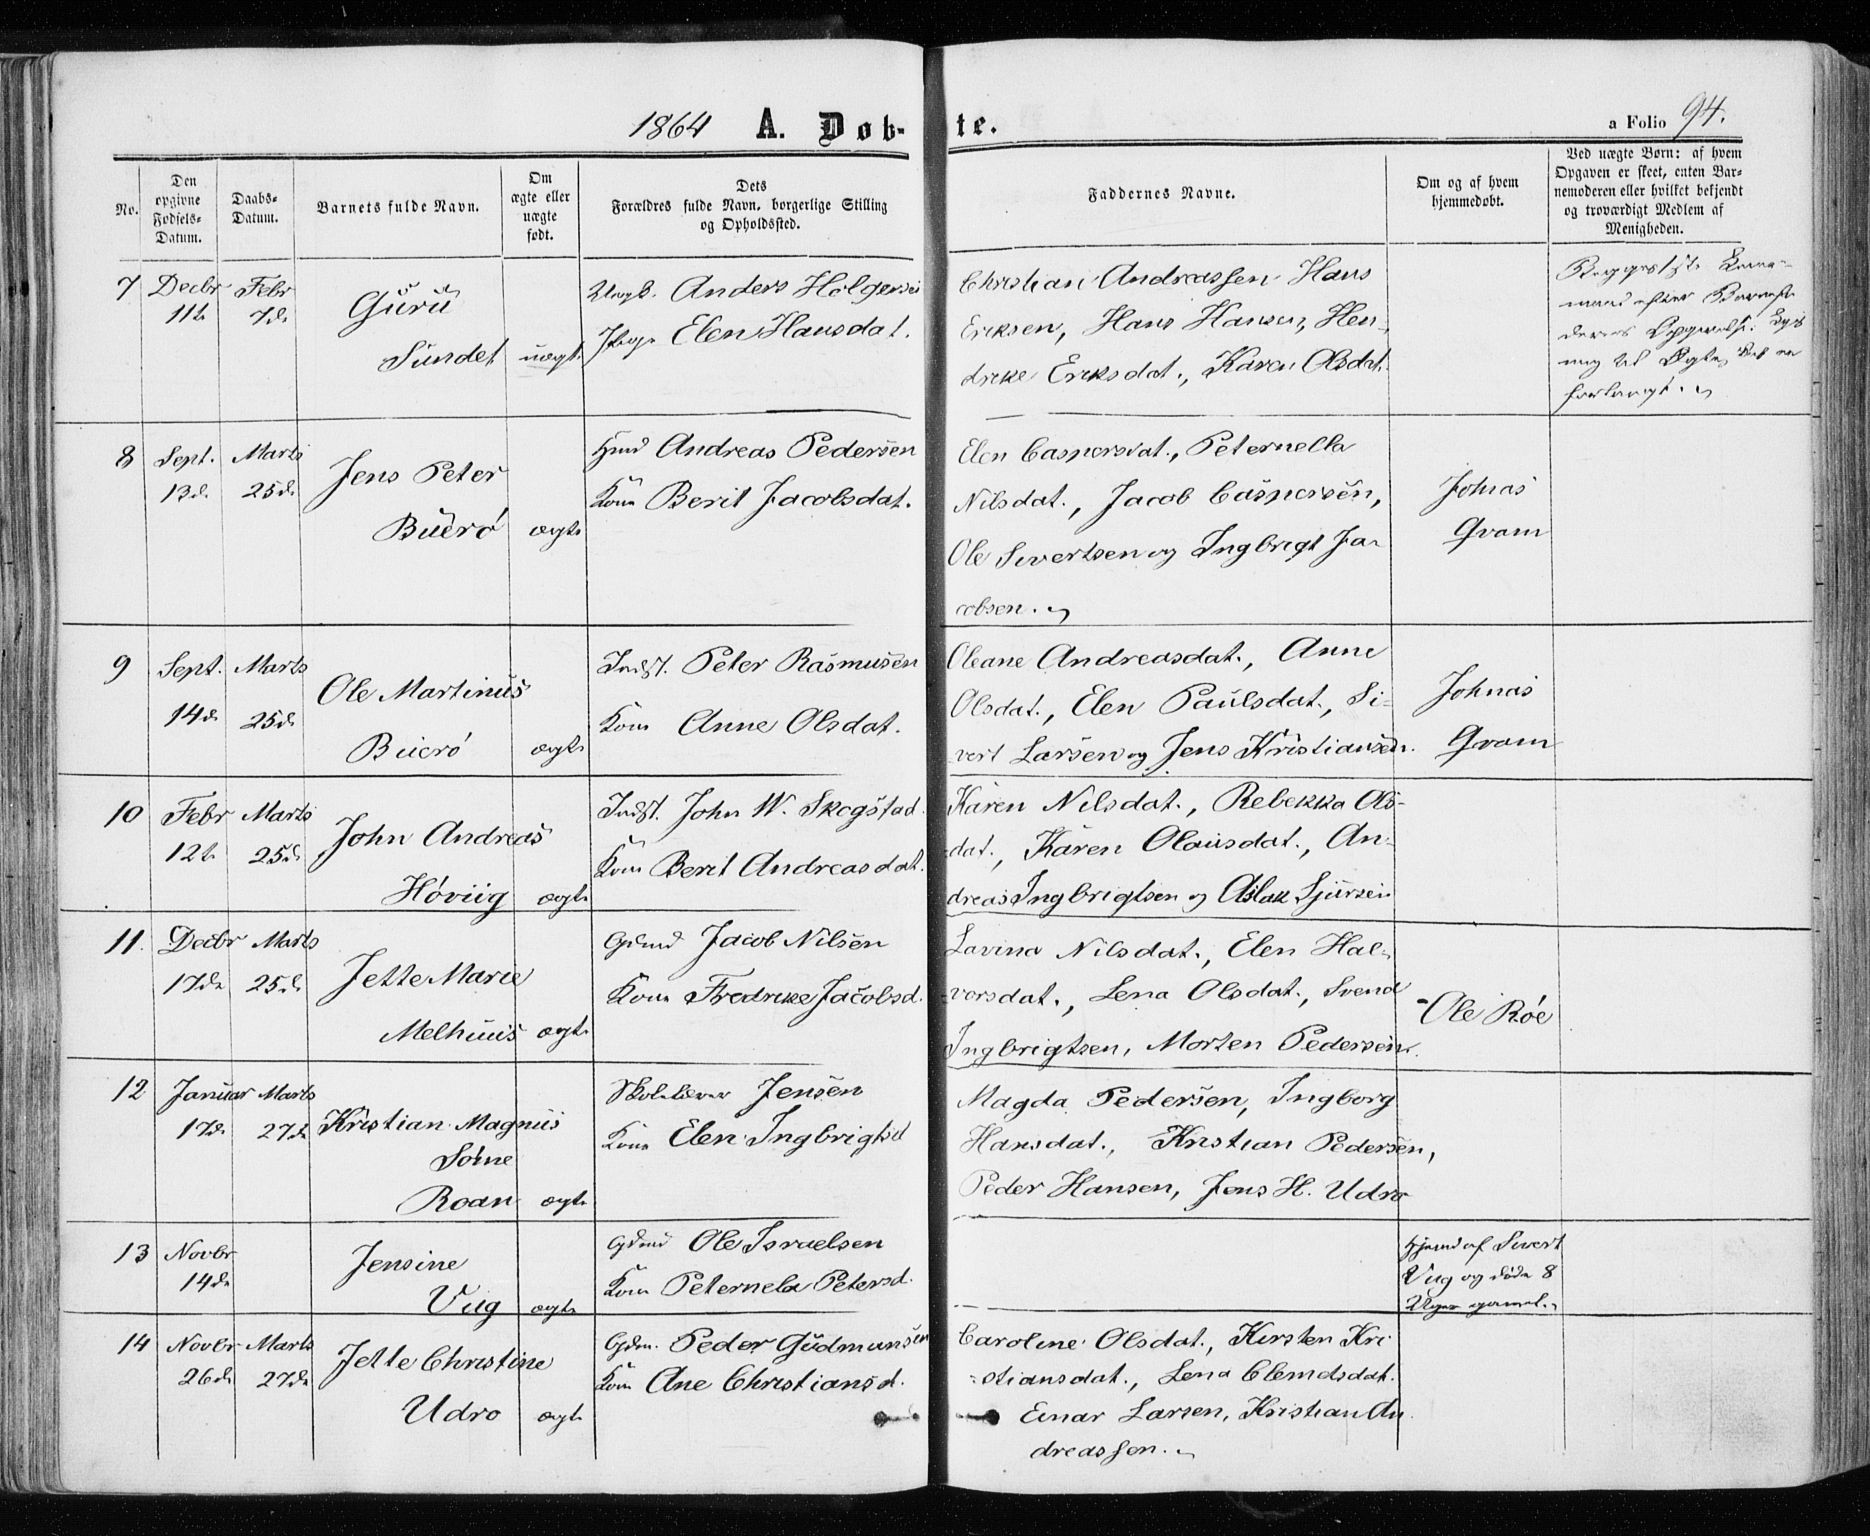 1864 A. Døb-
te.
a Folio 94.
No.
Den
opgivne
Fødsels-
Datum.
Daabs-
Datum.
Barnets fulde Navn.
Om
ægte eller
uægte
født.
Dets
Forældres fulde Navn, borgerlige Stilling
og Opholdssted.
Faddernes Navne.
Om og af hvem
hjemmedøbt.
Ved uægte Børn: af hvem
Opgaven er skeet, enten Bar-
nemoderen eller hvilket bekjendt
og troværdigt Medlem af
Menigheden.
7 Decbr Febr
11te 7de
Guru
Sundet uægt.
Ungk. Anders Holgersen
Pige Elen Hansdat.
Christian Andreassen Hans
Eriksen, Hans Hansen, Hen-
drike Eriksdat., Karen Olsdat.
til Ægte
forlangt.
8 Sept. Marts
13de 25de
Jens Peter
Buerø ægte
Hmd Andreas Pedersen
Kone Berit Jacobsdat.
Elen Caspersdat., Peternella
Nilsdat., Jacob Caspersen,
Ole Sivertsen og Ingbrigt Ja-
cobsen.
Johnas
Gram
9 Sept. Marts
14de 25de
Ole Martinus
Buerø ægte
Indst. Peter Rasmusen
Kone Anne Olsdat.
Oleane Andreasdat., Anne
Olsdat., Elen Paulsdat., Si-
vert Larsen og Jens Kristiansen.
Johnas
Gram
10 Febr Marts
12te 25de
John Andreas
Høviig ægte
Indst. John W. Skogstad
Kone Berit Andreasdat.
Karen Nilsdat., Rebekka Ols-
dat., Karen Olausdat., An-
dreas Ingbrigtsen og Aslak Sjursen
11. Decbr Marts
17de 25de
Jette Marie
Melhuus ægte
Gdmd Jacob Nilsen
Kone Fredrikke Jacobsd.
Lavina Nilsdat., Elen Hal-
vorsdat., Lena Olsdat., Svend
Ingbrigtsen, Morten Pedersen.
Ole Røe
12 Januar Marts
17de 27de
Kristian Magnus
Sørne
Roan ægte
Skolelærer Jensen
Kone Elen Ingbrigtsd
Magda Pedersen, Ingborg
Hansdat., Kristian Pedersen,
Peder Hansen, Jens H. Udro
13 Novbr
14de
Jensine
Vug ægte
Gdmd Ole Israelsen
Kone Peternela Petersd.
Hjemd af Sivert
Vug og døde 8
Uger gamel.
14 Novbr Marts
26de 27de
Jette Christine
Udro ægte
Gdm. Peder Gudmunsen
Kone Ane Christiansd.
Caroline Olsdat., Kirsten Kri-
stiansdat., Lena Clemdsdat.
Einar Larsen, Kristian An
dreassen.